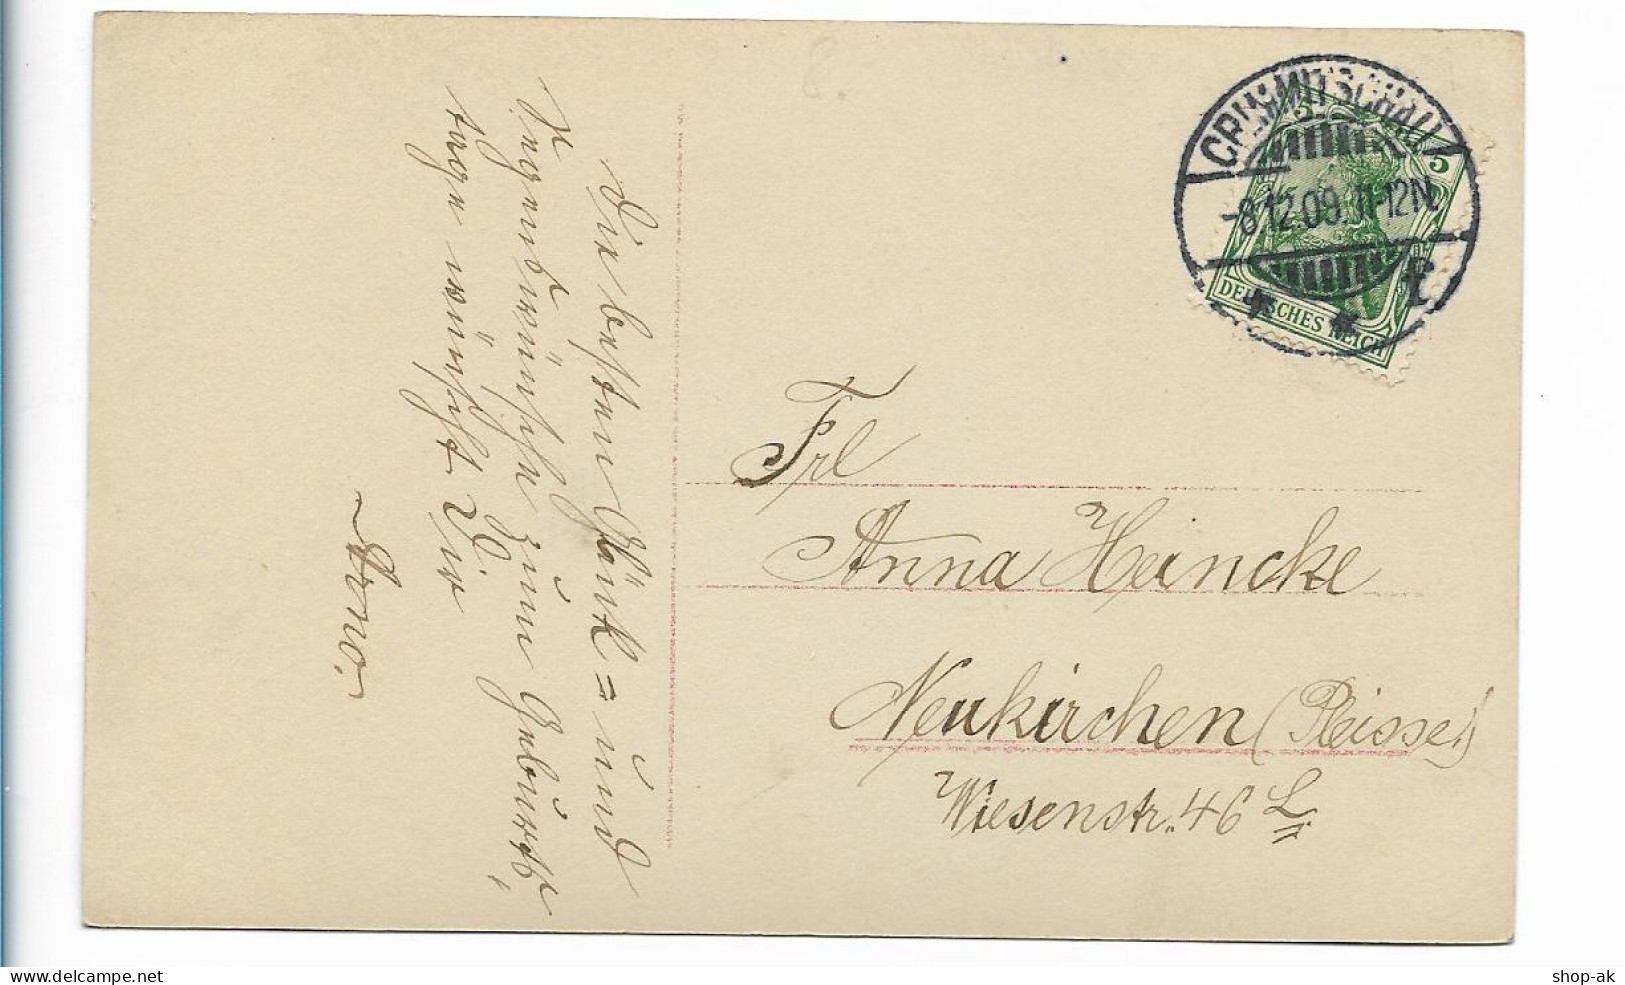 CRIMMITSCHAU
-8.12.09. 11-12N.
* * c
5
DEUTSCHES REICH
Die besten Glück= und
Segenswünsche zum Geburts-
tage wünscht Dir
Arno.
Frl
Anna Heincke
Neukirchen (Pleisse.)
Wiesenstr. 46 L.
shop-ak